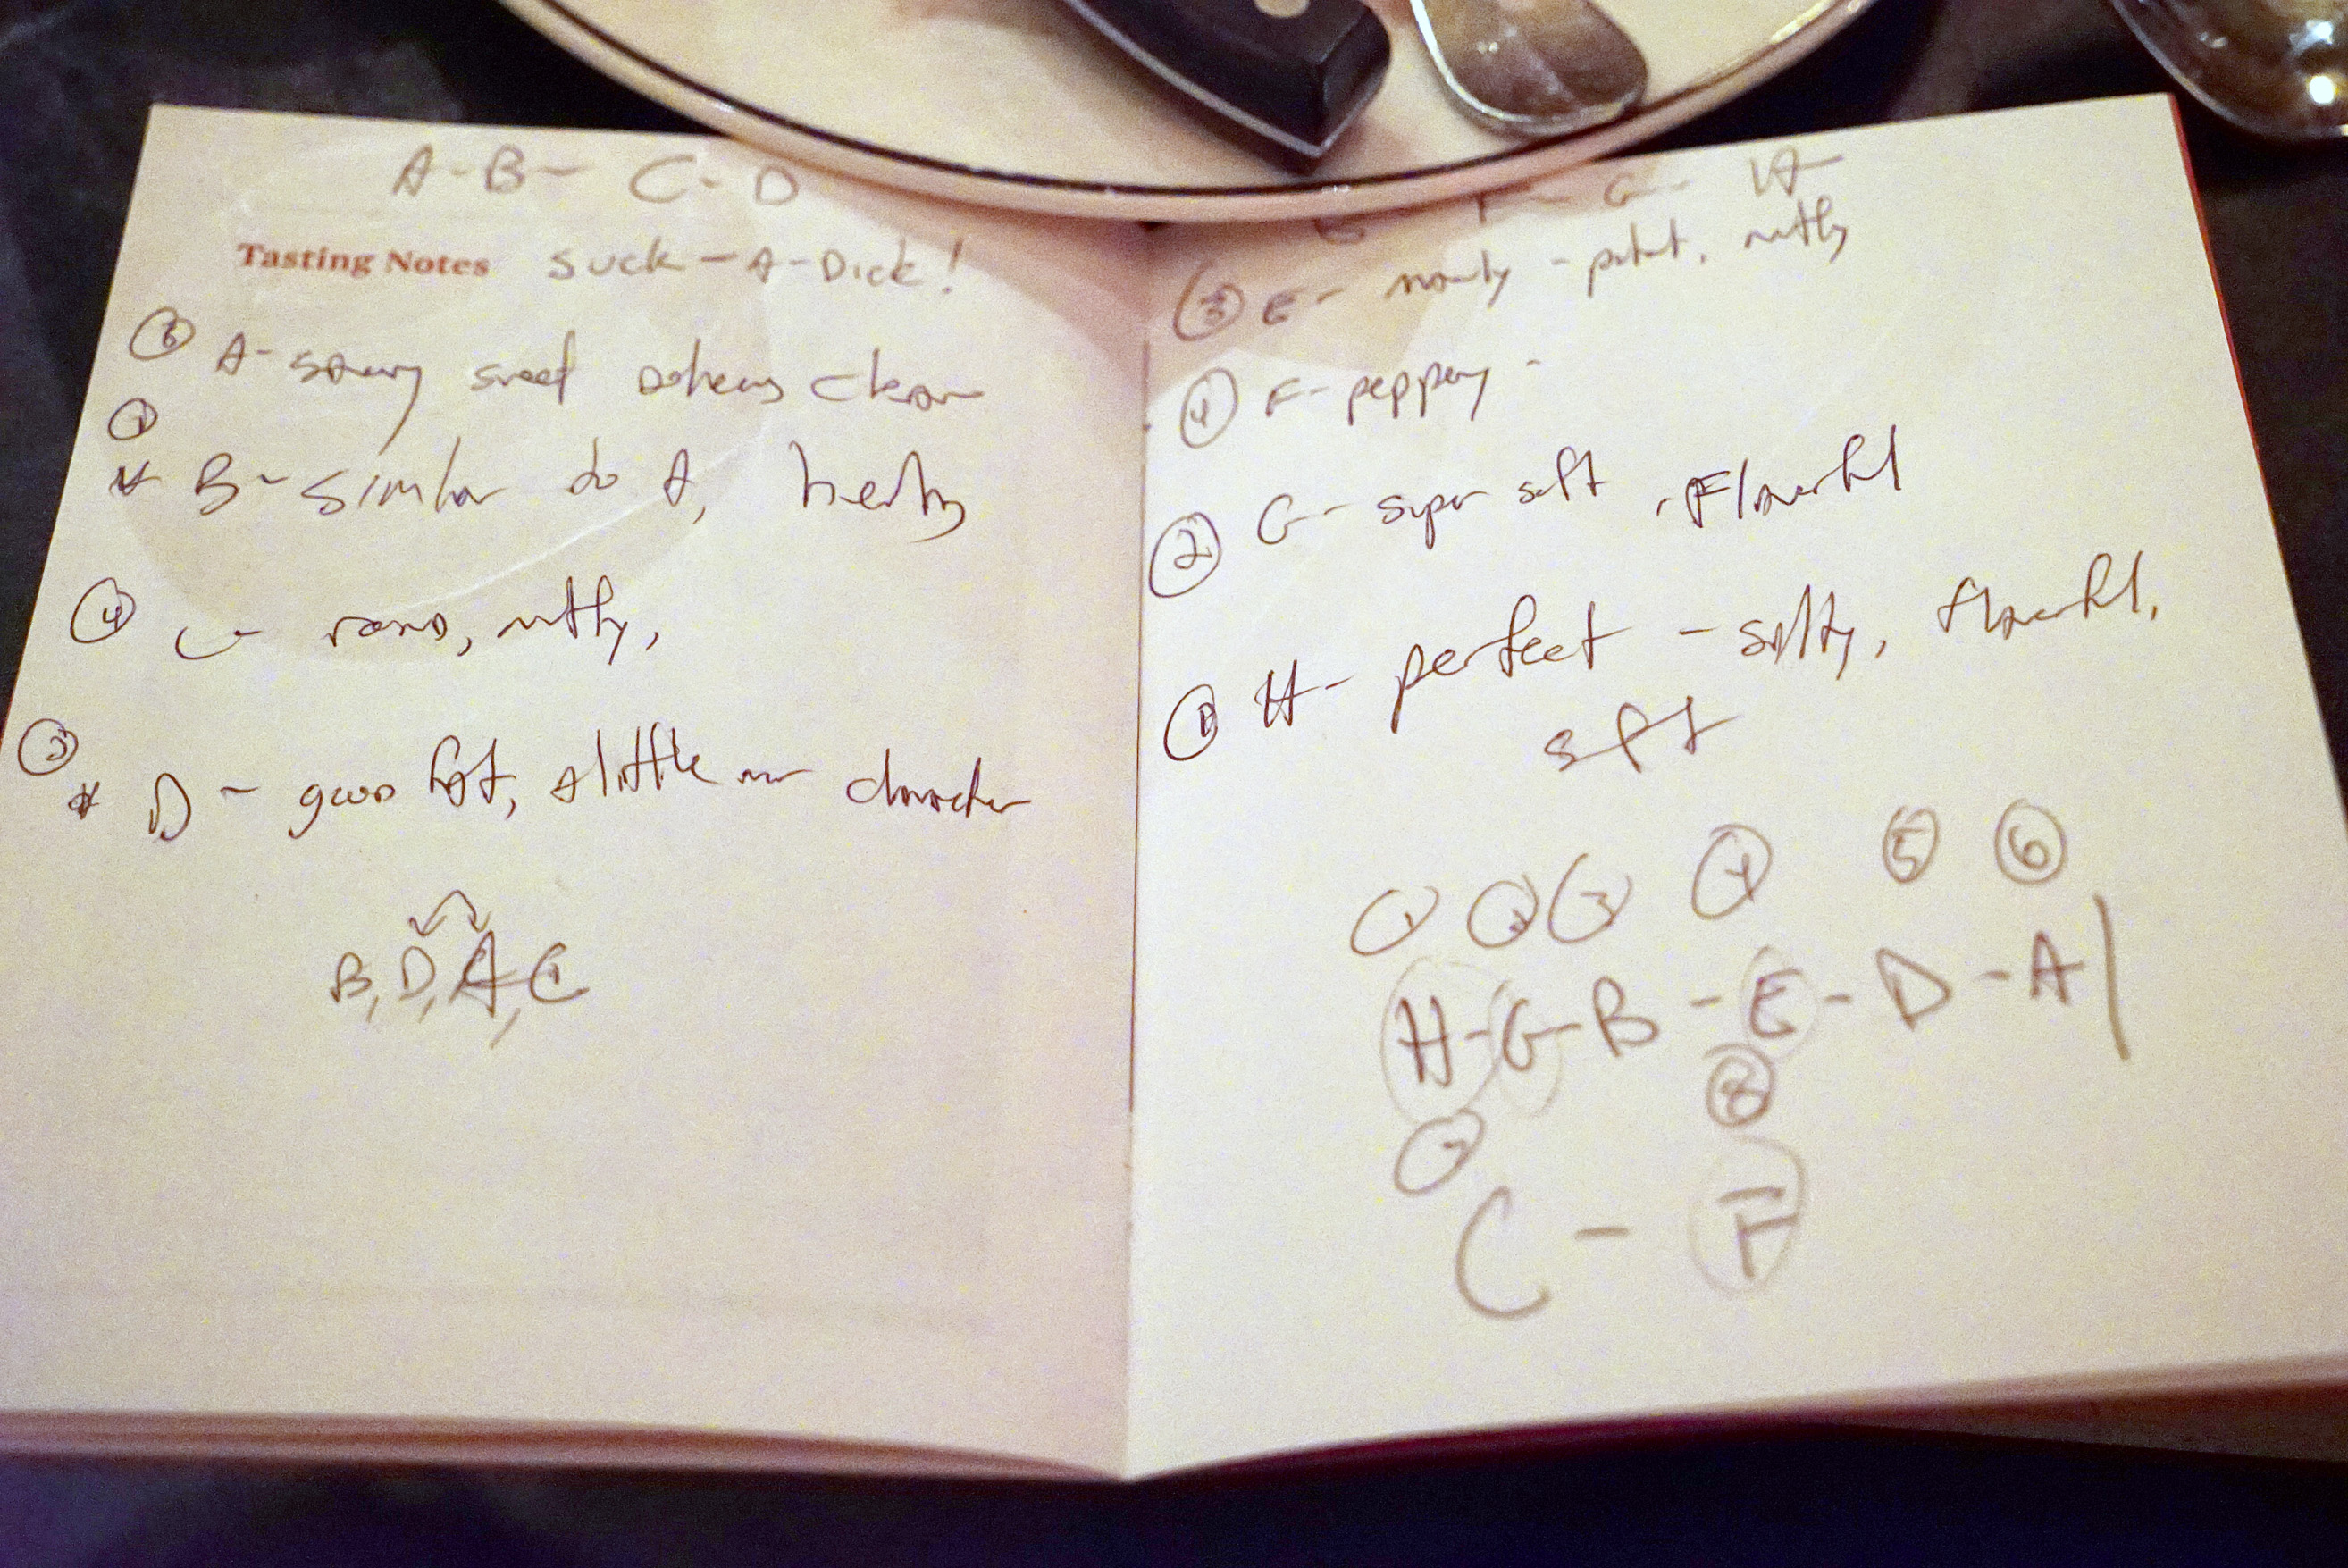 A-B- C-D
Tasting Notes suck-A-Dick!
A- sweet clean
①
* B- similar to A, herby
④ C- nutty,
* D- good fat, a little more character
B, D, A, C
G- H
③ E- nutty
④ F- peppery -
② G- super soft, Flavorful
① H- perfect - salty, flavorful,
soft
① ② ③ ④ ⑤ ⑥
H-G-B-E-D-A|
⑦ ⑧
C-F